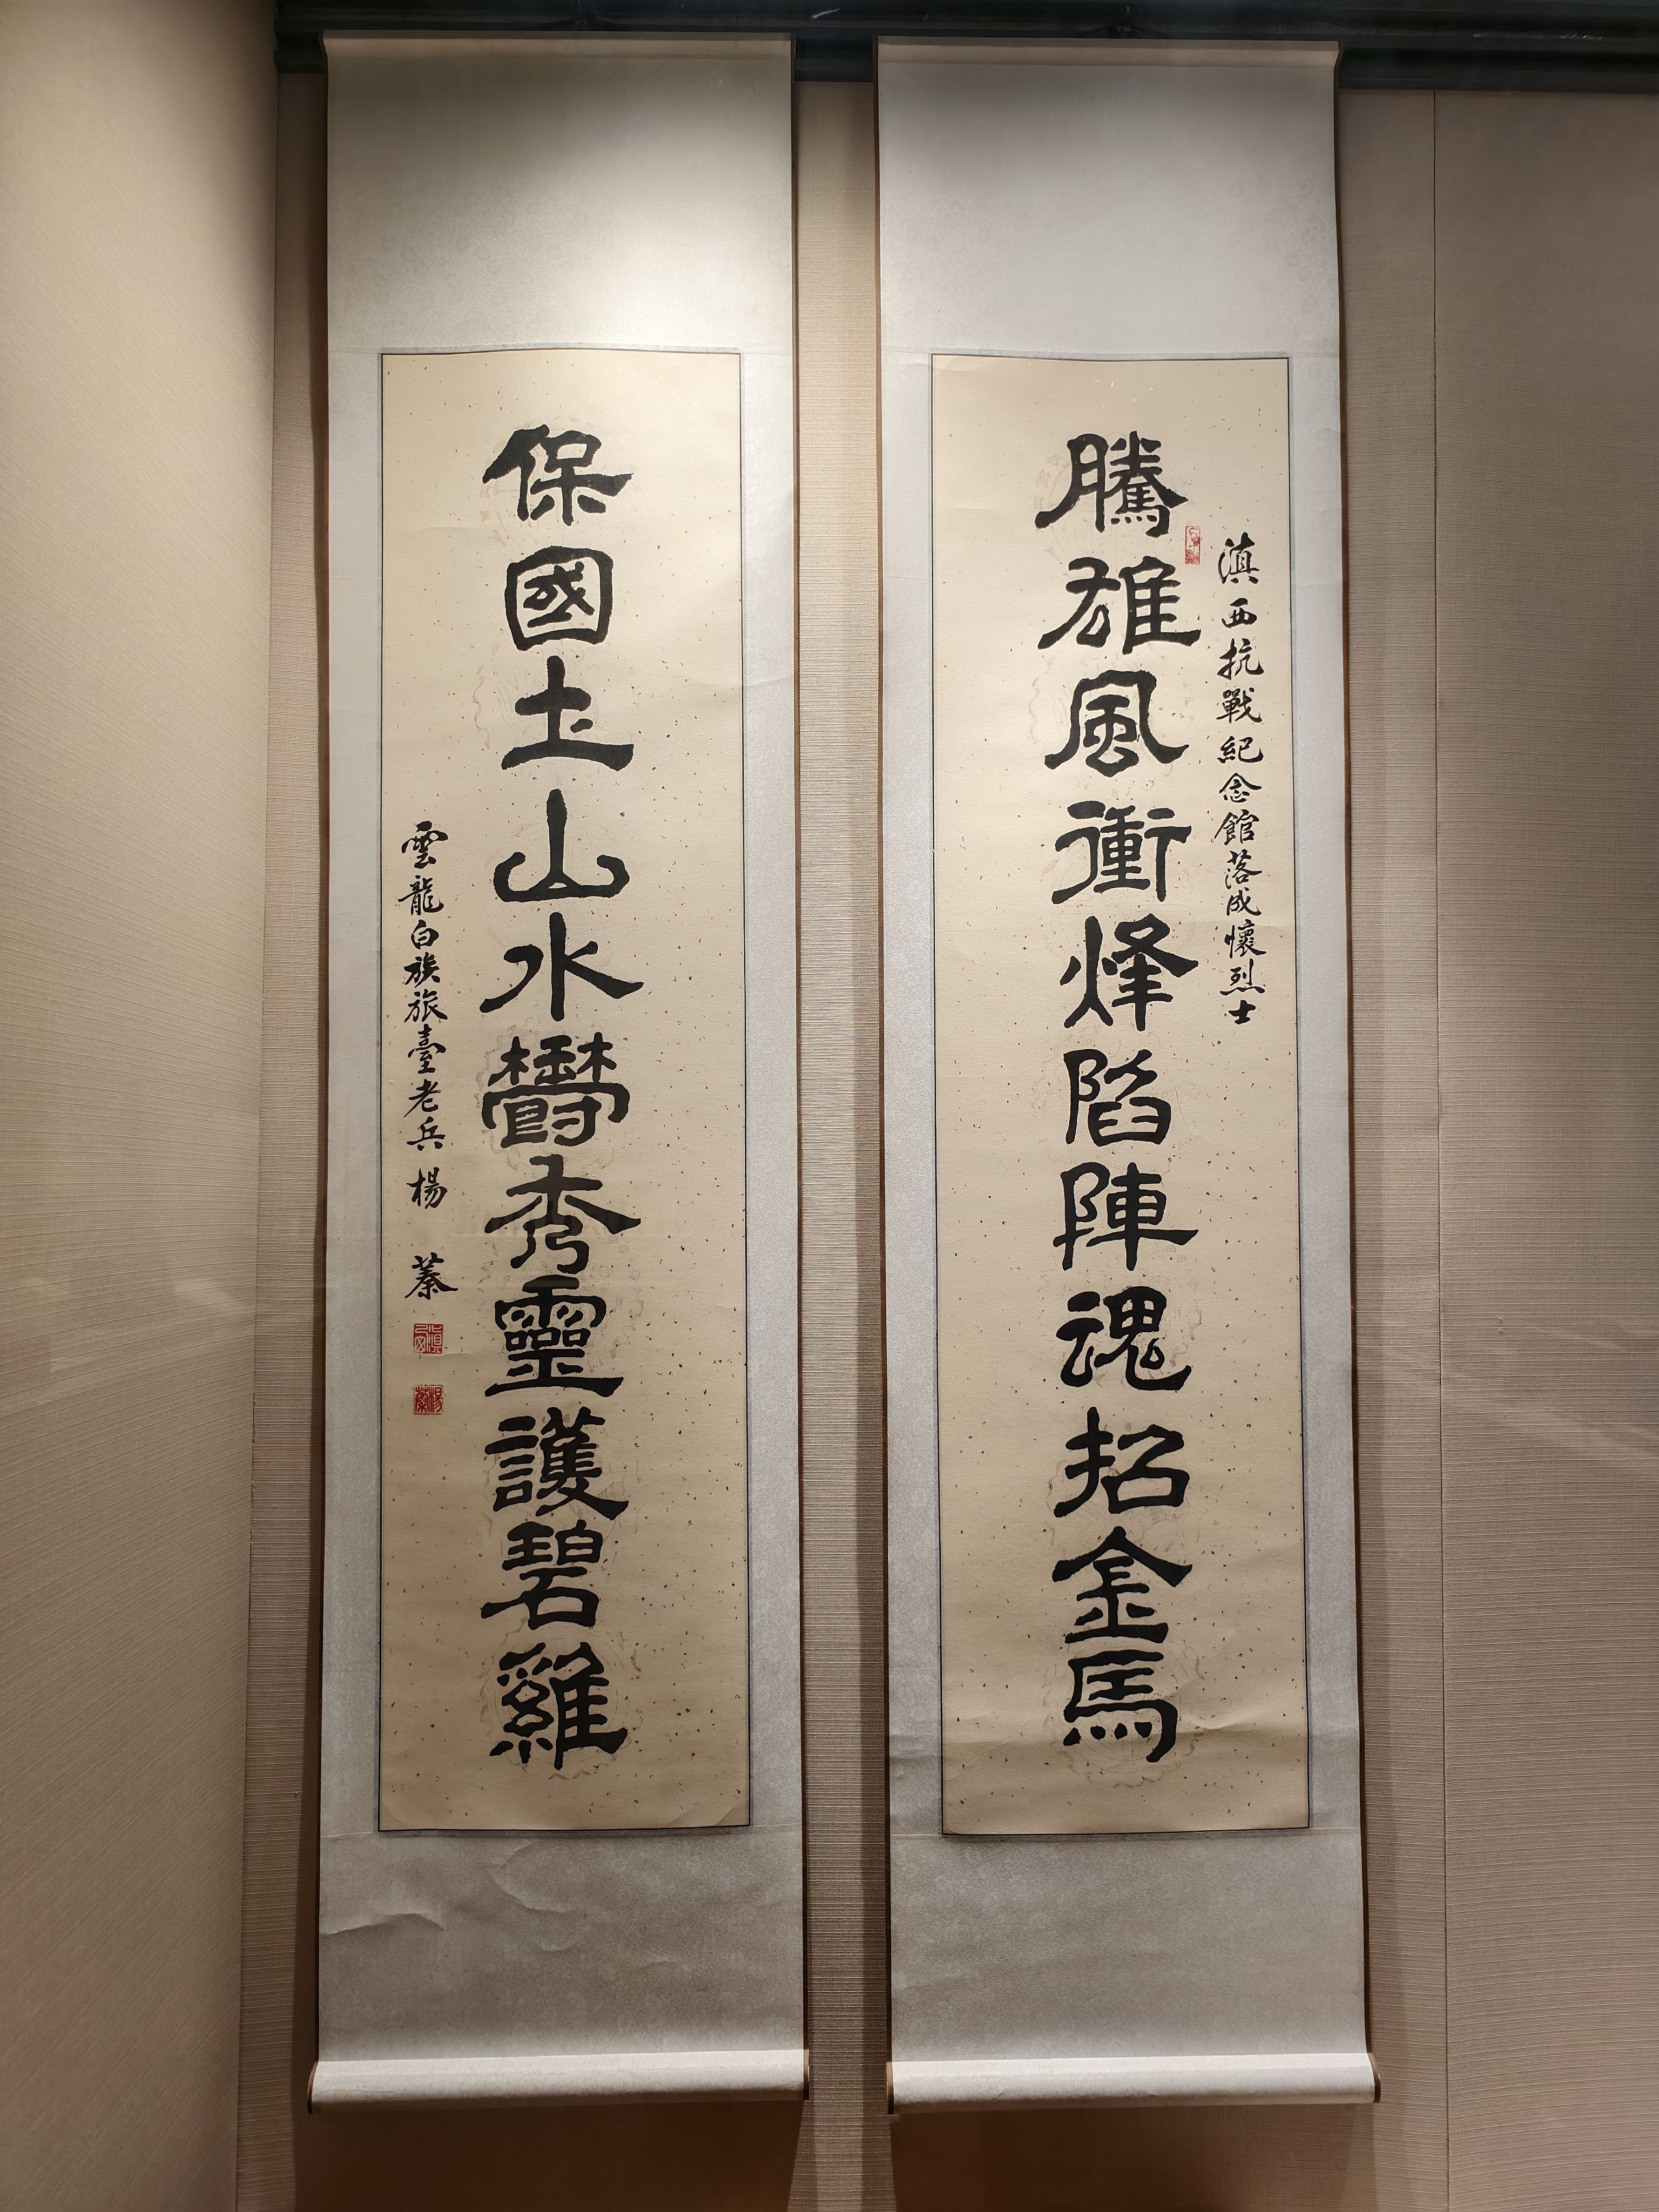 滇西抗戰紀念館落成懷烈士
騰雄風衝烽陷陣魂招金馬
保國土山水欝秀靈護碧雞
雲龍白族旅臺老兵楊蓁